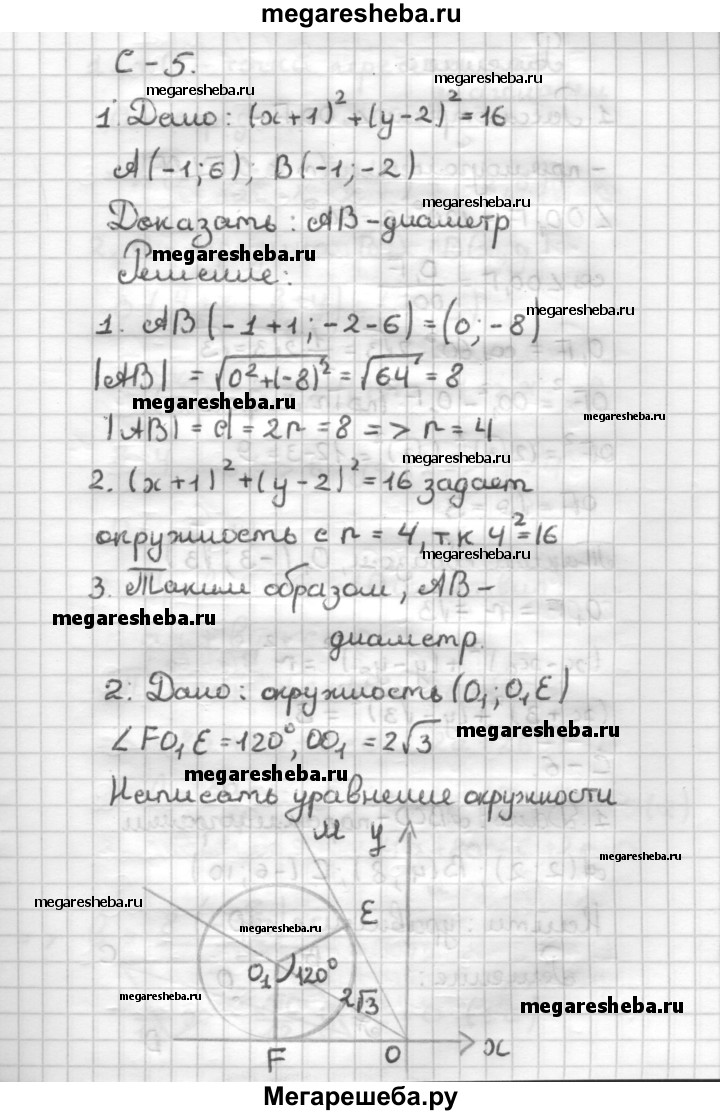 megaresheba.ru
С-5.
megaresheba.ru
megaresheba.ru
1. Дано: (x+1)²+(y-2)²=16
A(-1;6); B(-1;-2)
megaresheba.ru
Доказать: AB-диаметр
megaresheba.ru
Решение:
megaresheba.ru
1. AB(-1+1; -2-6)=(0;-8)
|AB| = √(0²+(-8)²) = √64 = 8
megaresheba.ru
megaresheba.ru
|AB| = d = 2r = 8 => r = 4
megaresheba.ru
2. (x+1)²+(y-2)²=16 задает
окружность с r = 4, т.к 4²=16
megaresheba.ru
3. Таким образом, AB-
megaresheba.ru
диаметр.
2. Дано: окружность (O₁; O₁E)
∠FO₁E=120°, OO₁ = 2√3
megaresheba.ru
megaresheba.ru
Написать уравнение окружности
M y
megaresheba.ru
megaresheba.ru
E
megaresheba.ru
O₁ 120°
megaresheba.ru
2√3
megaresheba.ru
F O x
Мегарешеба.ру